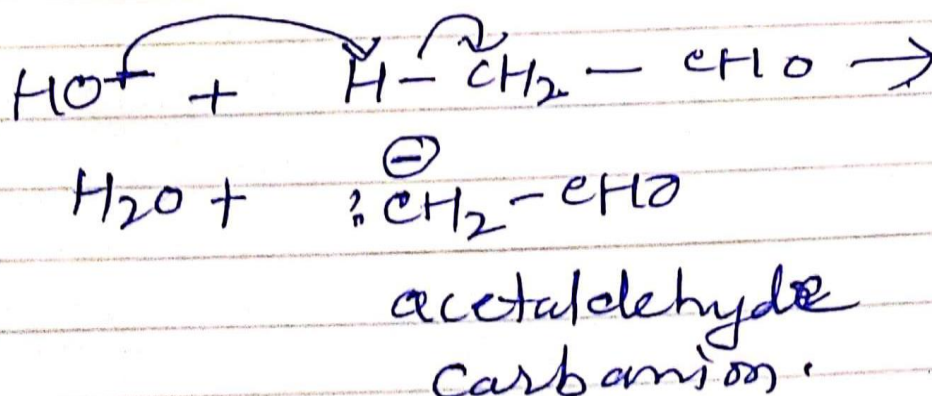 HO⁺ + H – CH₂ – CHO →
H₂O + :C̄H₂ – CHO
acetaldehyde
carbanion.